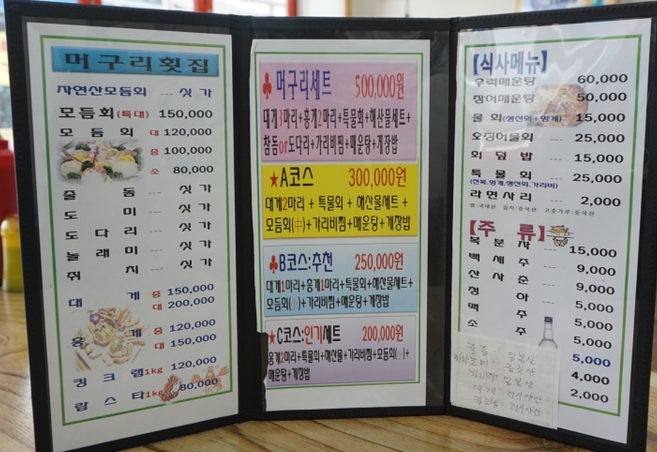 머구리횟집
자연산모듬회 --- 싯가
모듬회(특대) 150,000
모듬회 대 120,000
중 100,000
소 80,000
줄돔 --- 싯가
도미 --- 싯가
도다리 --- 싯가
놀래미 --- 싯가
쥐치 --- 싯가
대게 중 150,000
대 200,000
홍게 중 120,000
대 150,000
킹크랩 1kg 120,000
랍스타 1kg 80,000
♣머구리세트 500,000원
대게3마리+홍게2마리+특물회+해산물세트+
참돔or도다리+가리비찜+매운탕+게장밥
★A코스 300,000원
대게2마리 + 특물회 + 해산물세트 +
모듬회(中)+가리비찜+매운탕+게장밥
♣B코스:추천 250,000원
대게1마리+홍게1마리+특물회+해산물세트+
모듬회(소)+가리비찜+매운탕+게장밥
★C코스:인기세트 200,000원
홍게2마리+특물회+해산물+가리비찜+모듬회(소)+
매운탕+게장밥
【식사메뉴】
우럭매운탕 60,000
장어매운탕 50,000
물회(생선회+멍게) 15,000
오징어물회 --- 25,000
회덮밥 --- 15,000
특물회 --- 25,000
(전복,멍게,생선회,가리비)
라면사리 --- 2,000
쌀:국내산 김치:중국산 고춧가루:중국산
【주류】
복분자 --- 15,000
백세주 --- 9,000
산사춘 --- 9,000
청하 --- 5,000
맥주 --- 5,000
소주 5,000
5,000
4,000
2,000
일본산
중국산
일본산
러시아산
러시아산